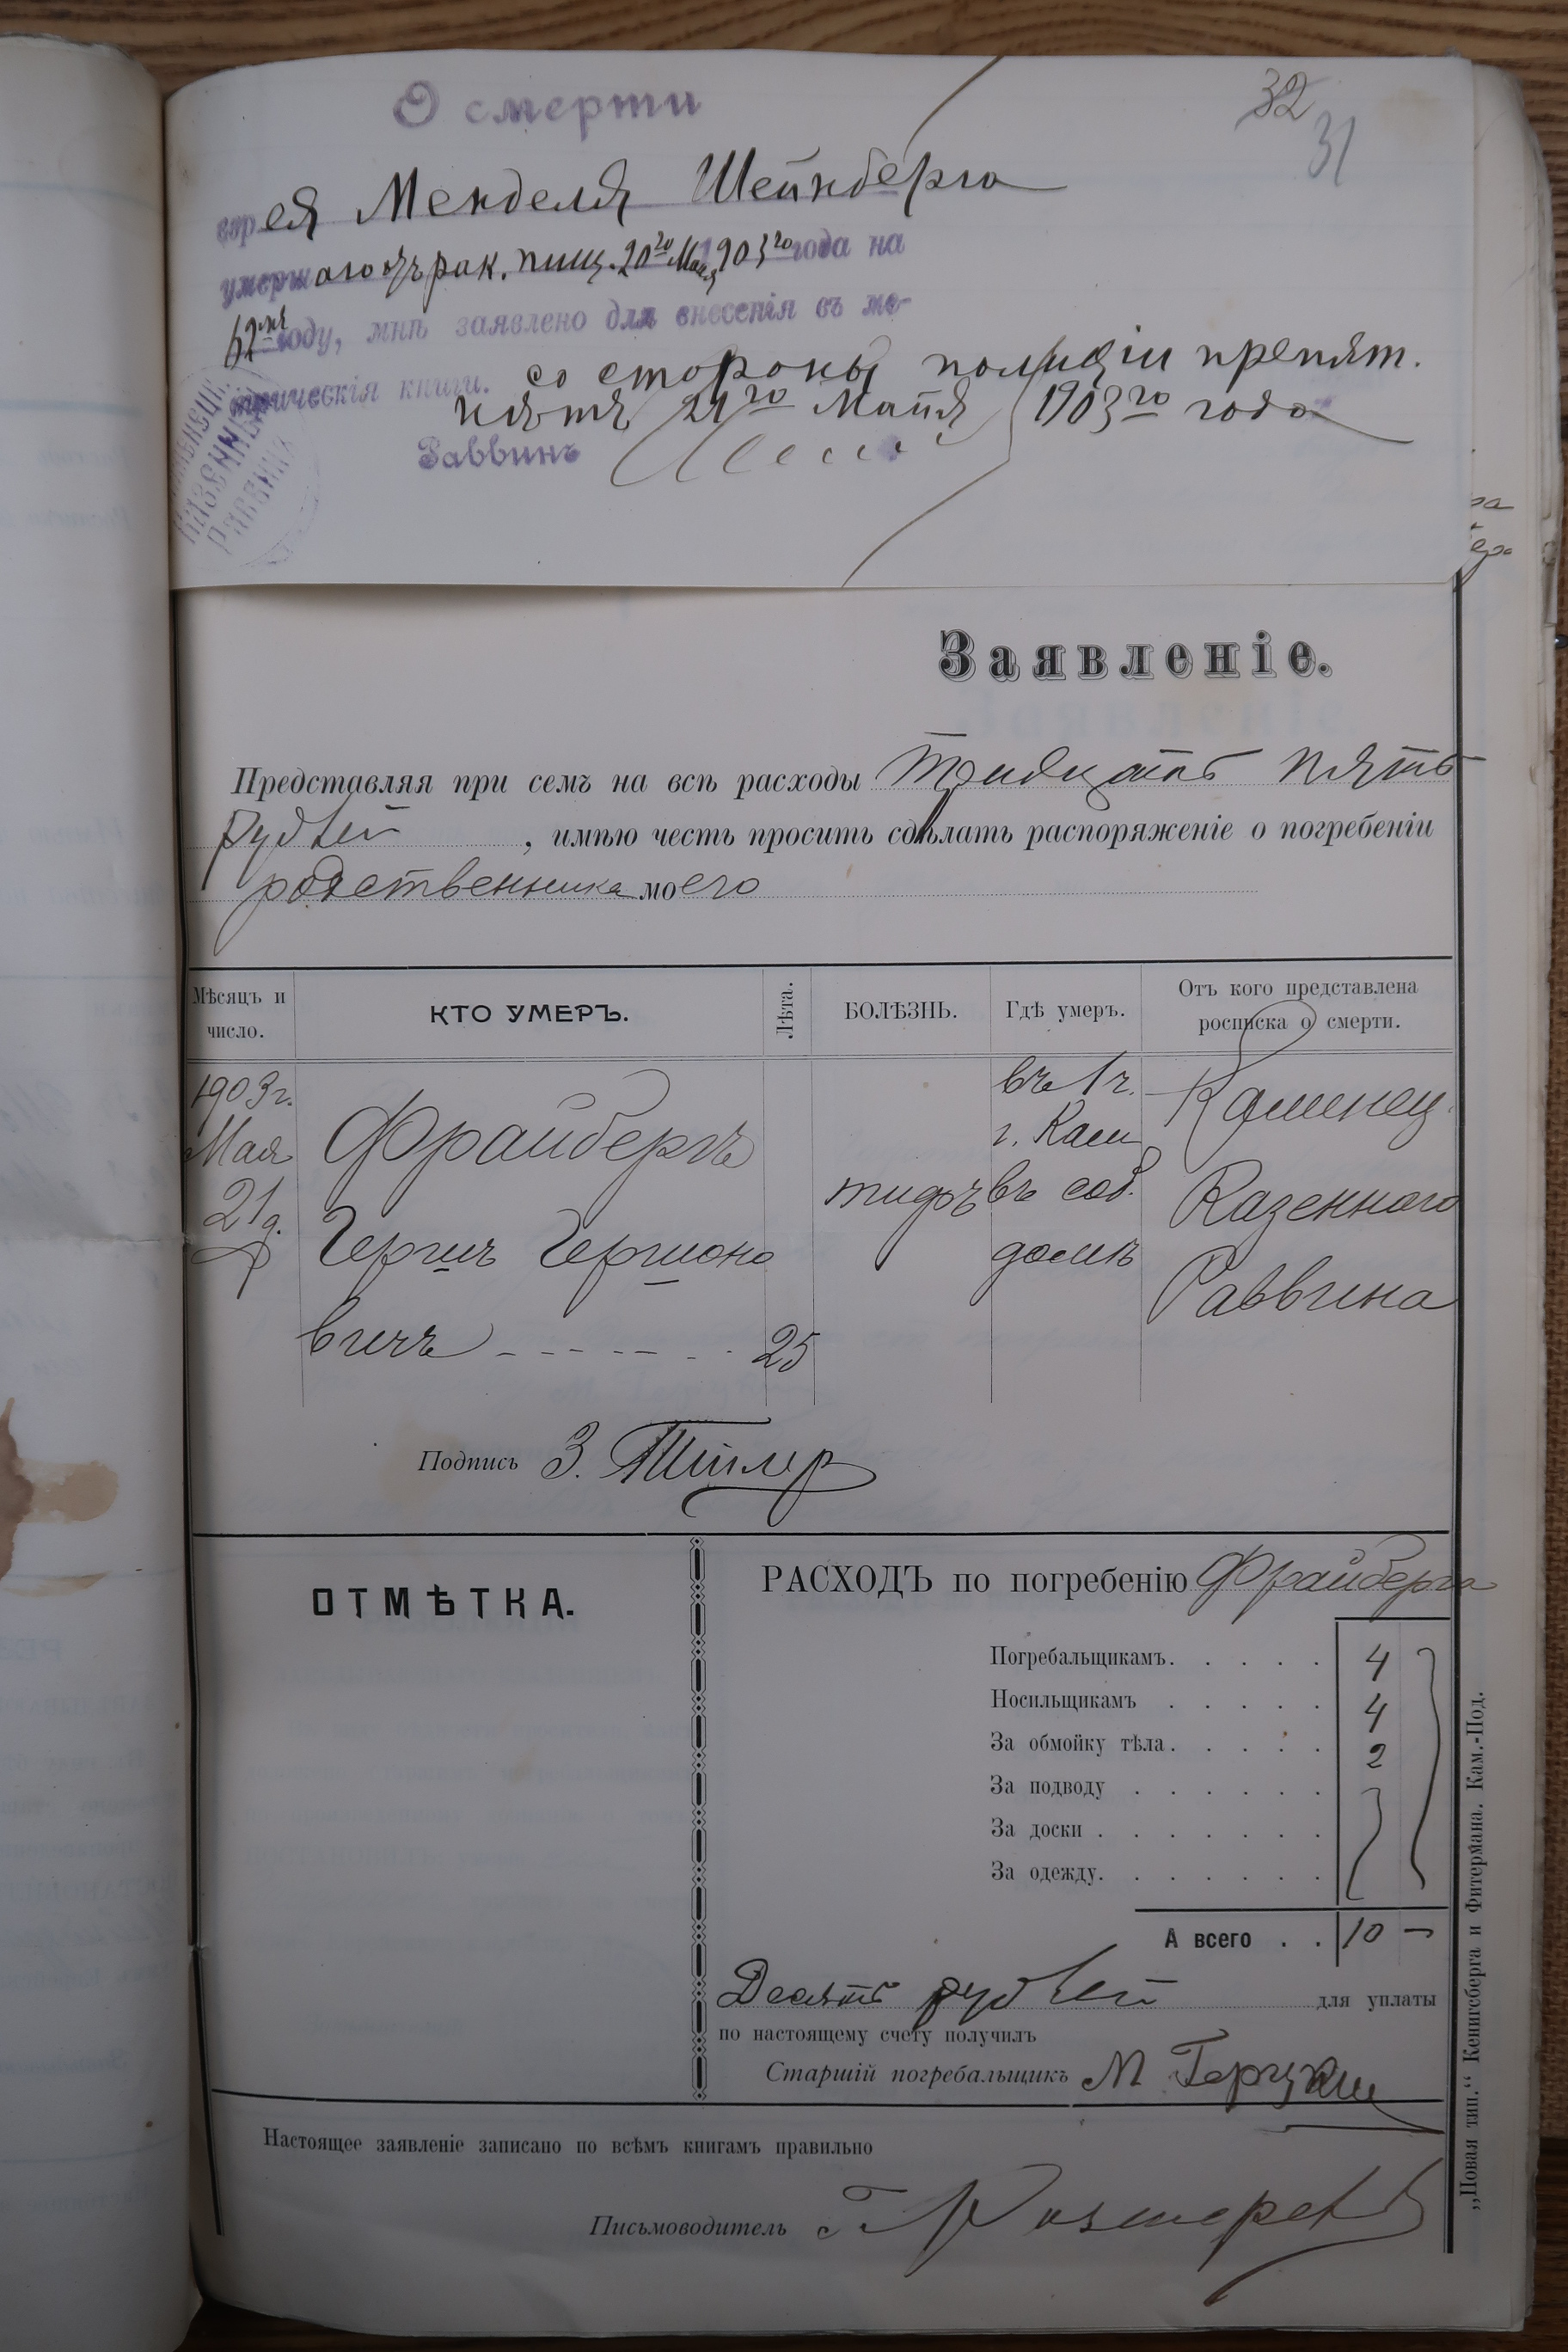 О смерти
32
31
еврея Менделя Шейнберга
умершаго отъ рак. пищ. 20го Мая 1903го года на
62мъ году, мнѣ заявлено для внесенія въ ме-
трическія книги. со стороны полиціи препят.
нѣтъ 21го Маія 1903го года
Раввинъ
КАЗЕННЫЙ
РАВВИНЪ
Заявленіе.
Представляя при семъ на всѣ расходы Тридцать пять
рублей, имѣю честь просить сдѣлать распоряженіе о погребеніи
родственника моего
Мѣсяцъ и число.
КТО УМЕРЪ.
Лѣта.
БОЛѢЗНЬ.
Гдѣ умеръ.
Отъ кого представлена росписка о смерти.
1903 г.
Мая
21 д.
Фрайбергъ
Гершъ Гершоно
вичъ
25
тифъ
въ 1 ч.
г. Кам
въ соб.
домѣ
Каменец.
Казеннаго
Раввина
Подпись З.
ОТМѢТКА.
РАСХОДЪ по погребенію Фрайберга
Погребальщикамъ. . . . . 4
Носильщикамъ . . . . . 4
За обмойку тѣла. . . . . 2
За подводу . . . . . .
За доски . . . . . . .
За одежду. . . . . . .
А всего . . 10 —
Десять рублей для уплаты
по настоящему счету получилъ
Старшій погребальщикъ М
Настоящее заявленіе записано по всѣмъ книгамъ правильно
Письмоводитель
„Новая тип.“ Кенигсберга и Фитермана. Кам.-Под.